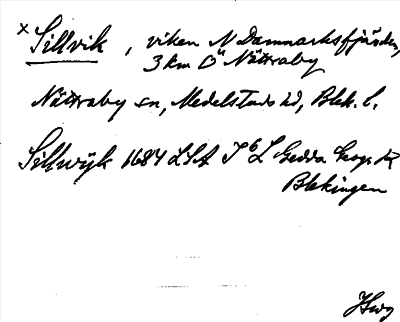 x Sillvik, viken N Danmarksfjärden,
3 km Ö Nättraby
Nättraby sn, Medelstads hd, Blek. l.
Sillwijk 1684 LSA I 6 L Gedda Geogr. k
Blekingen